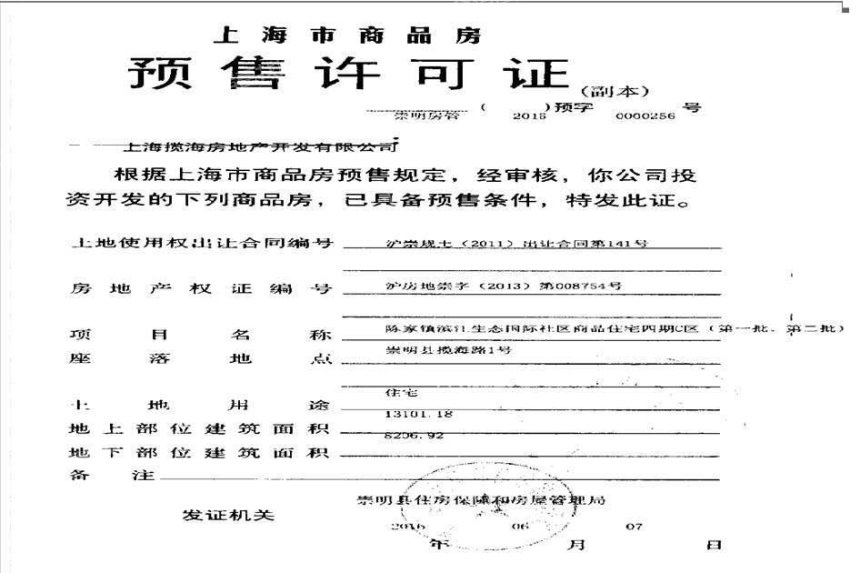 上海市商品房
预售许可证
(副本)
崇明房管 ( 2015 )预字 0000256 号
上海揽海房地产开发有限公司
根据上海市商品房预售规定，经审核，你公司投
资开发的下列商品房，已具备预售条件，特发此证。
土地使用权出让合同编号 沪崇规土（2011）出让合同第141号
房地产权证编号 沪房地崇字（2013）第008754号
项目名称 陈家镇滨江生态国际社区商品住宅四期C区（第一批、第二批）
座落地点 崇明县揽海路1号
土地用途 住宅
地上部位建筑面积 13101.18
地下部位建筑面积 8206.92
备注
发证机关 崇明县住房保障和房屋管理局
06 07
年 月 日